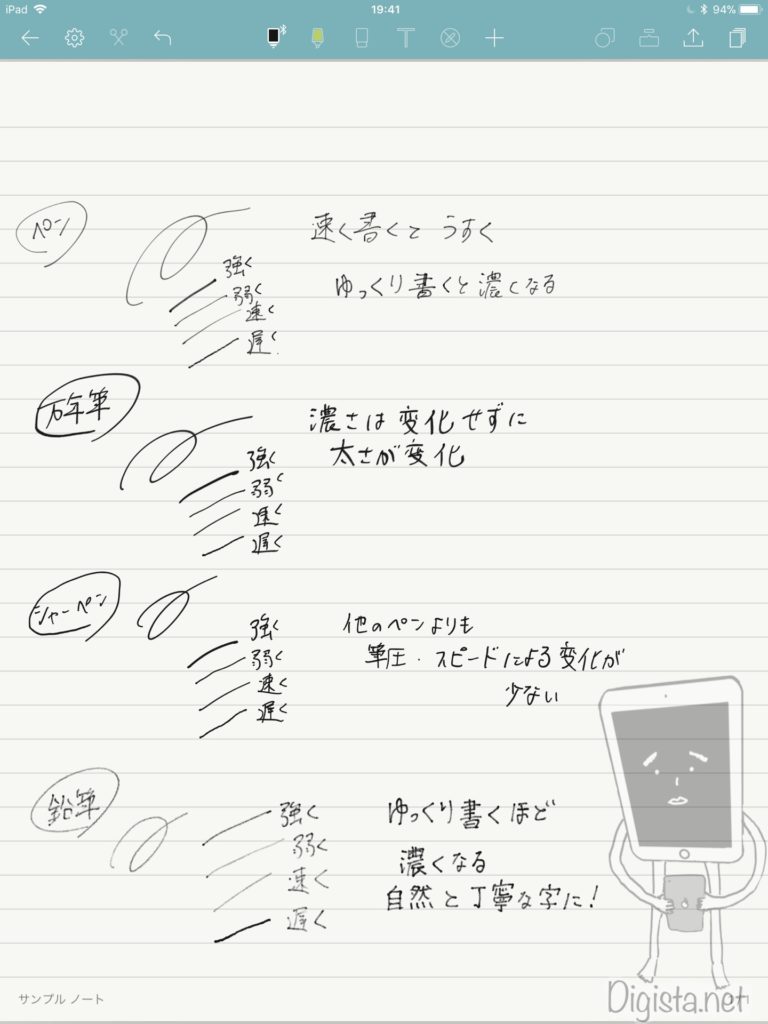 iPad
19:41
94%
ペン
速く書くと うすく
強く
弱く
速く
遅く
ゆっくり書くと濃くなる
万年筆
濃さは変化せずに
太さが変化
強く
弱く
速く
遅く
シャーペン
強く
弱く
速く
遅く
他のペンよりも
筆圧・スピードによる変化が
少ない
鉛筆
強く
弱く
速く
遅く
ゆっくり書くほど
濃くなる
自然と丁寧な字に!
サンプル ノート
Digista.net